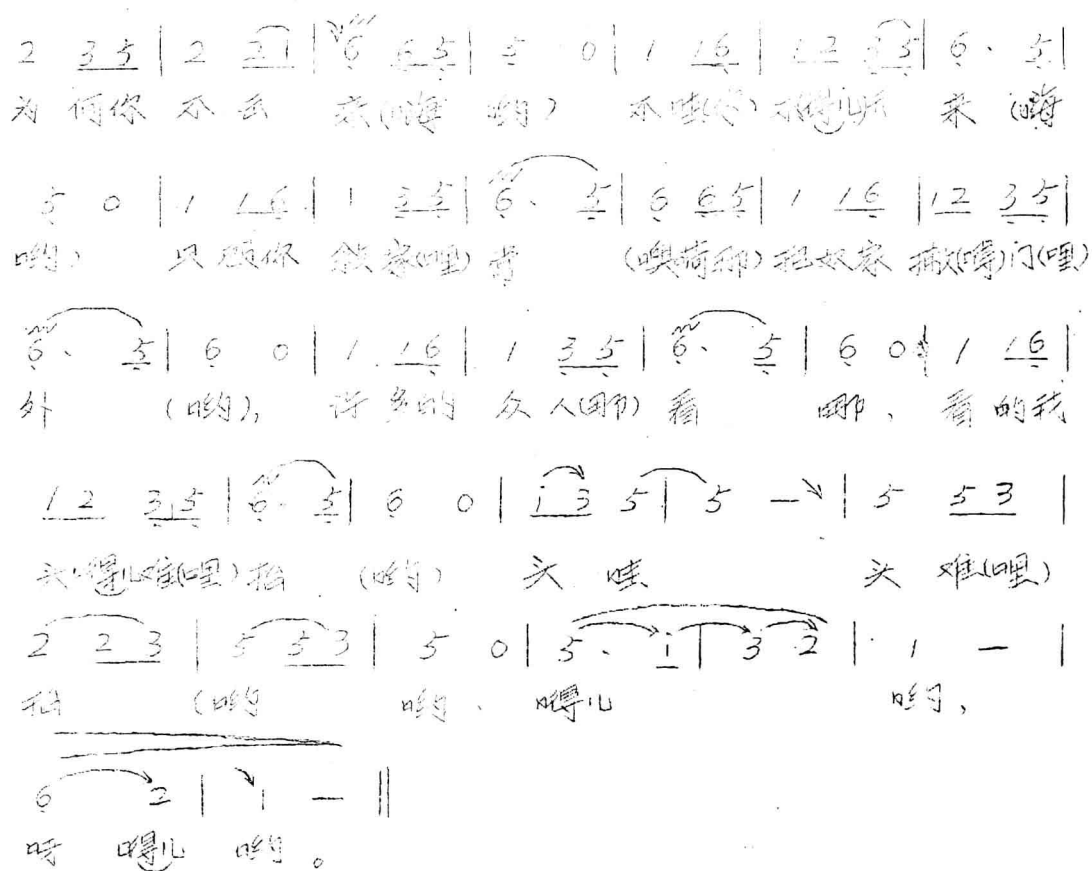 2 35 | 2 21 | 6 65 | 5 0 | 1 16 | 12 35 | 6· 5 |
为 何你 不 去 来(嗨 哟) 不哇 来 (嗨
5 0 | 1 16 | 1 35 | 6· 5 | 6 65 | 1 16 | 12 35 |
哟) 只顾你 家(哩) (噢荷那)把奴家 (嘚)门(哩)
6· 5 | 6 0 | 1 16 | 1 35 | 6· 5 | 6 0 | 1 16 |
外 (哟), 许多的 众人(哪) 看 哪、看的我
12 35 | 6· 5 | 6 0 | i3 5 | 5 — | 5 53 |
头(嘚儿)难(哩)抬 (哟) 头 哇 头 难(哩)
2 23 | 5 53 | 5 0 | 5· i | 3 2 | 1 — |
抬 (哟 哟、嘚儿 哟,
6 2 | 1 — ‖
呀 嘚儿 哟。